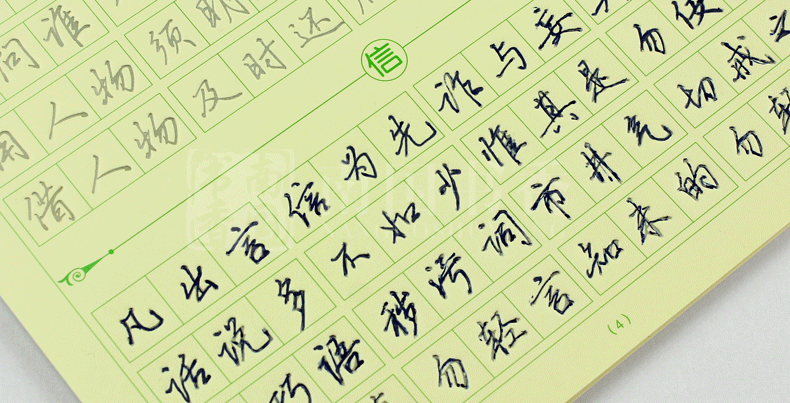 问谁
用人物 须明
借人物 及时还
信
凡出言 信为先 诈与妄
话说多 不如少 惟其是 勿佞
巧语 秽污词 市井气 切戒之
勿轻言 知未的 勿轻
(4)